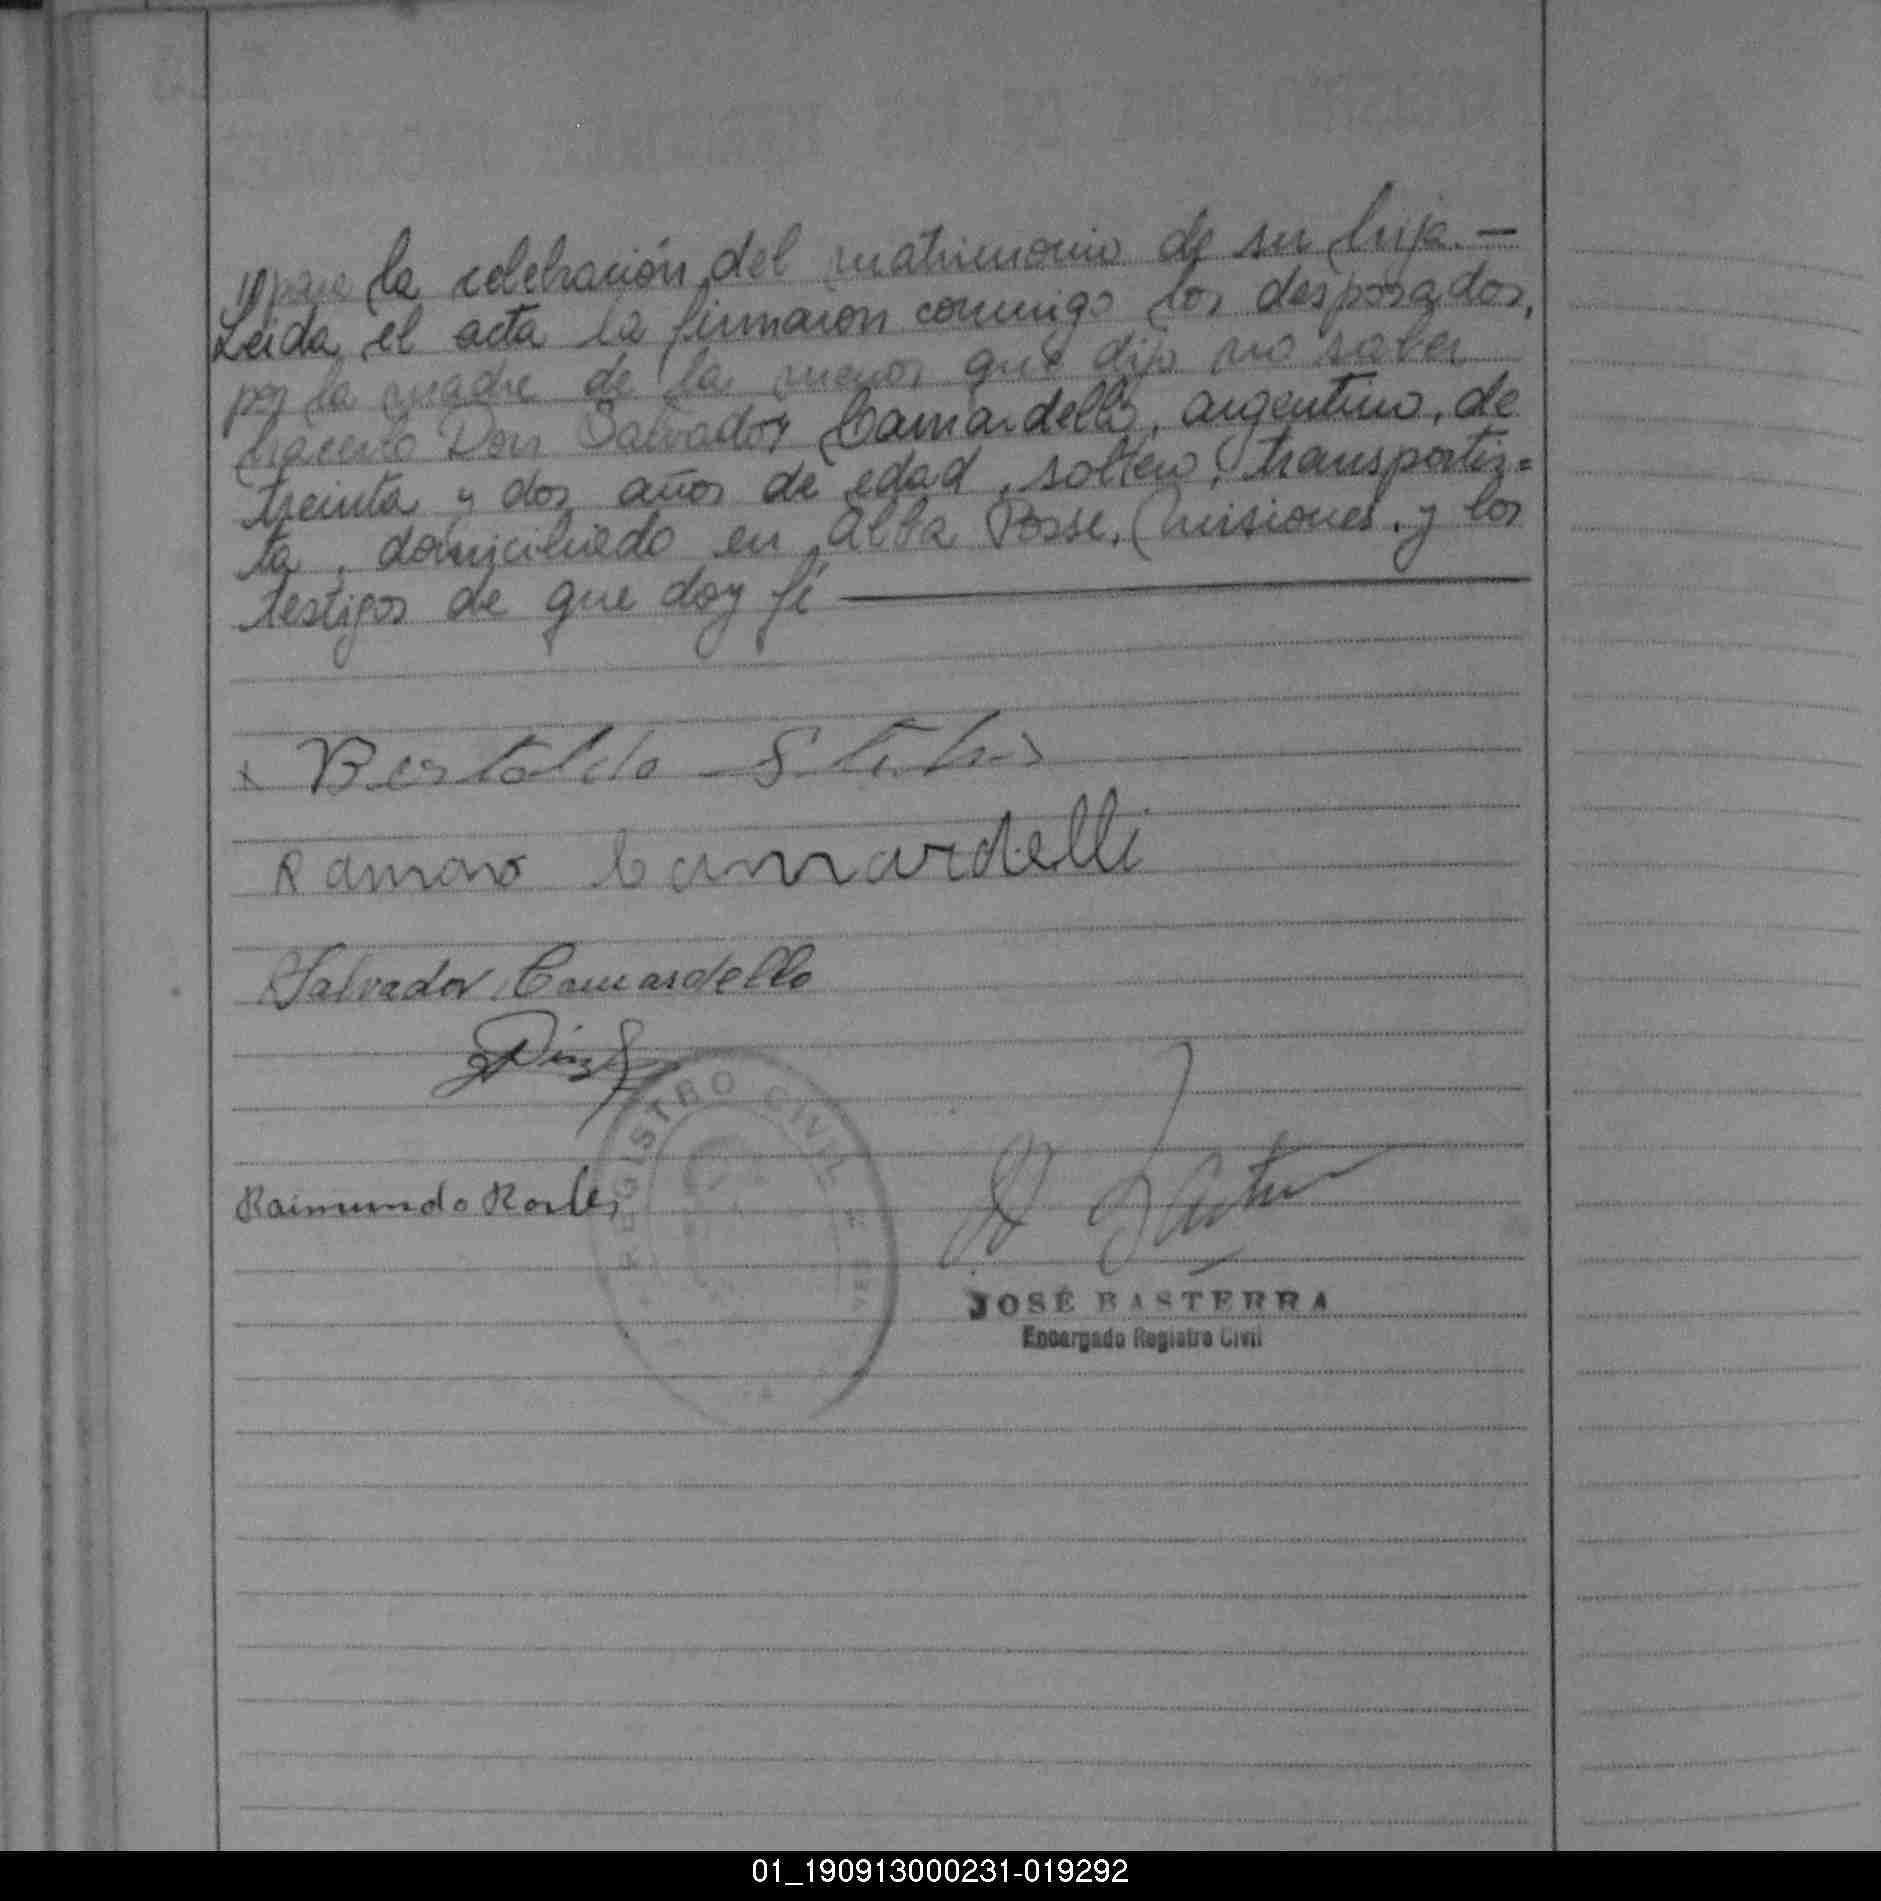 para la celebración del matrimonio de su hija.—
Leida el acta la firmaron conmigo los desposados,
por la madre de la menor que dijo no saber
hacerlo Don Salvador Camardelli, argentino, de
treinta y dos años de edad, soltero, transportis=
ta, domiciliado en Alba Posse, Misiones, y los
testigos de que doy fé
Bertoldo
Ramona Camardelli
Salvador Camardello
Raimundo
REGISTRO CIVIL
JOSÉ BASTERRA
Encargado Registro Civil
01_190913000231-019292